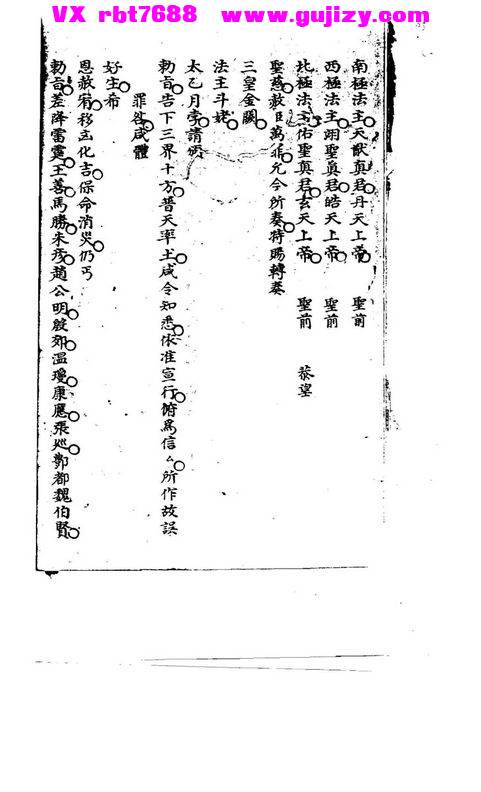 VX rbt7688 www.gujizy.com
南極法主天猷真君丹天上帝 聖前
西極法主翊聖真君皓天上帝 聖前
北極法主佑聖真君玄天上帝 聖前 恭望
聖慈赦臣萬罪允今所奏特賜轉奏
三皇金闕
法主斗姥
太乙月孛請頒
勅旨告下三界十方普天率土咸令知悉依准宣行俯為信厶所作故誤
罪咎咸體
好生希
恩赦宥移凶化吉保命消災仍丐
勅旨差降雷霆王善馬勝朱彥趙公明殷郊溫瓊康應張巡酆都魏伯賢